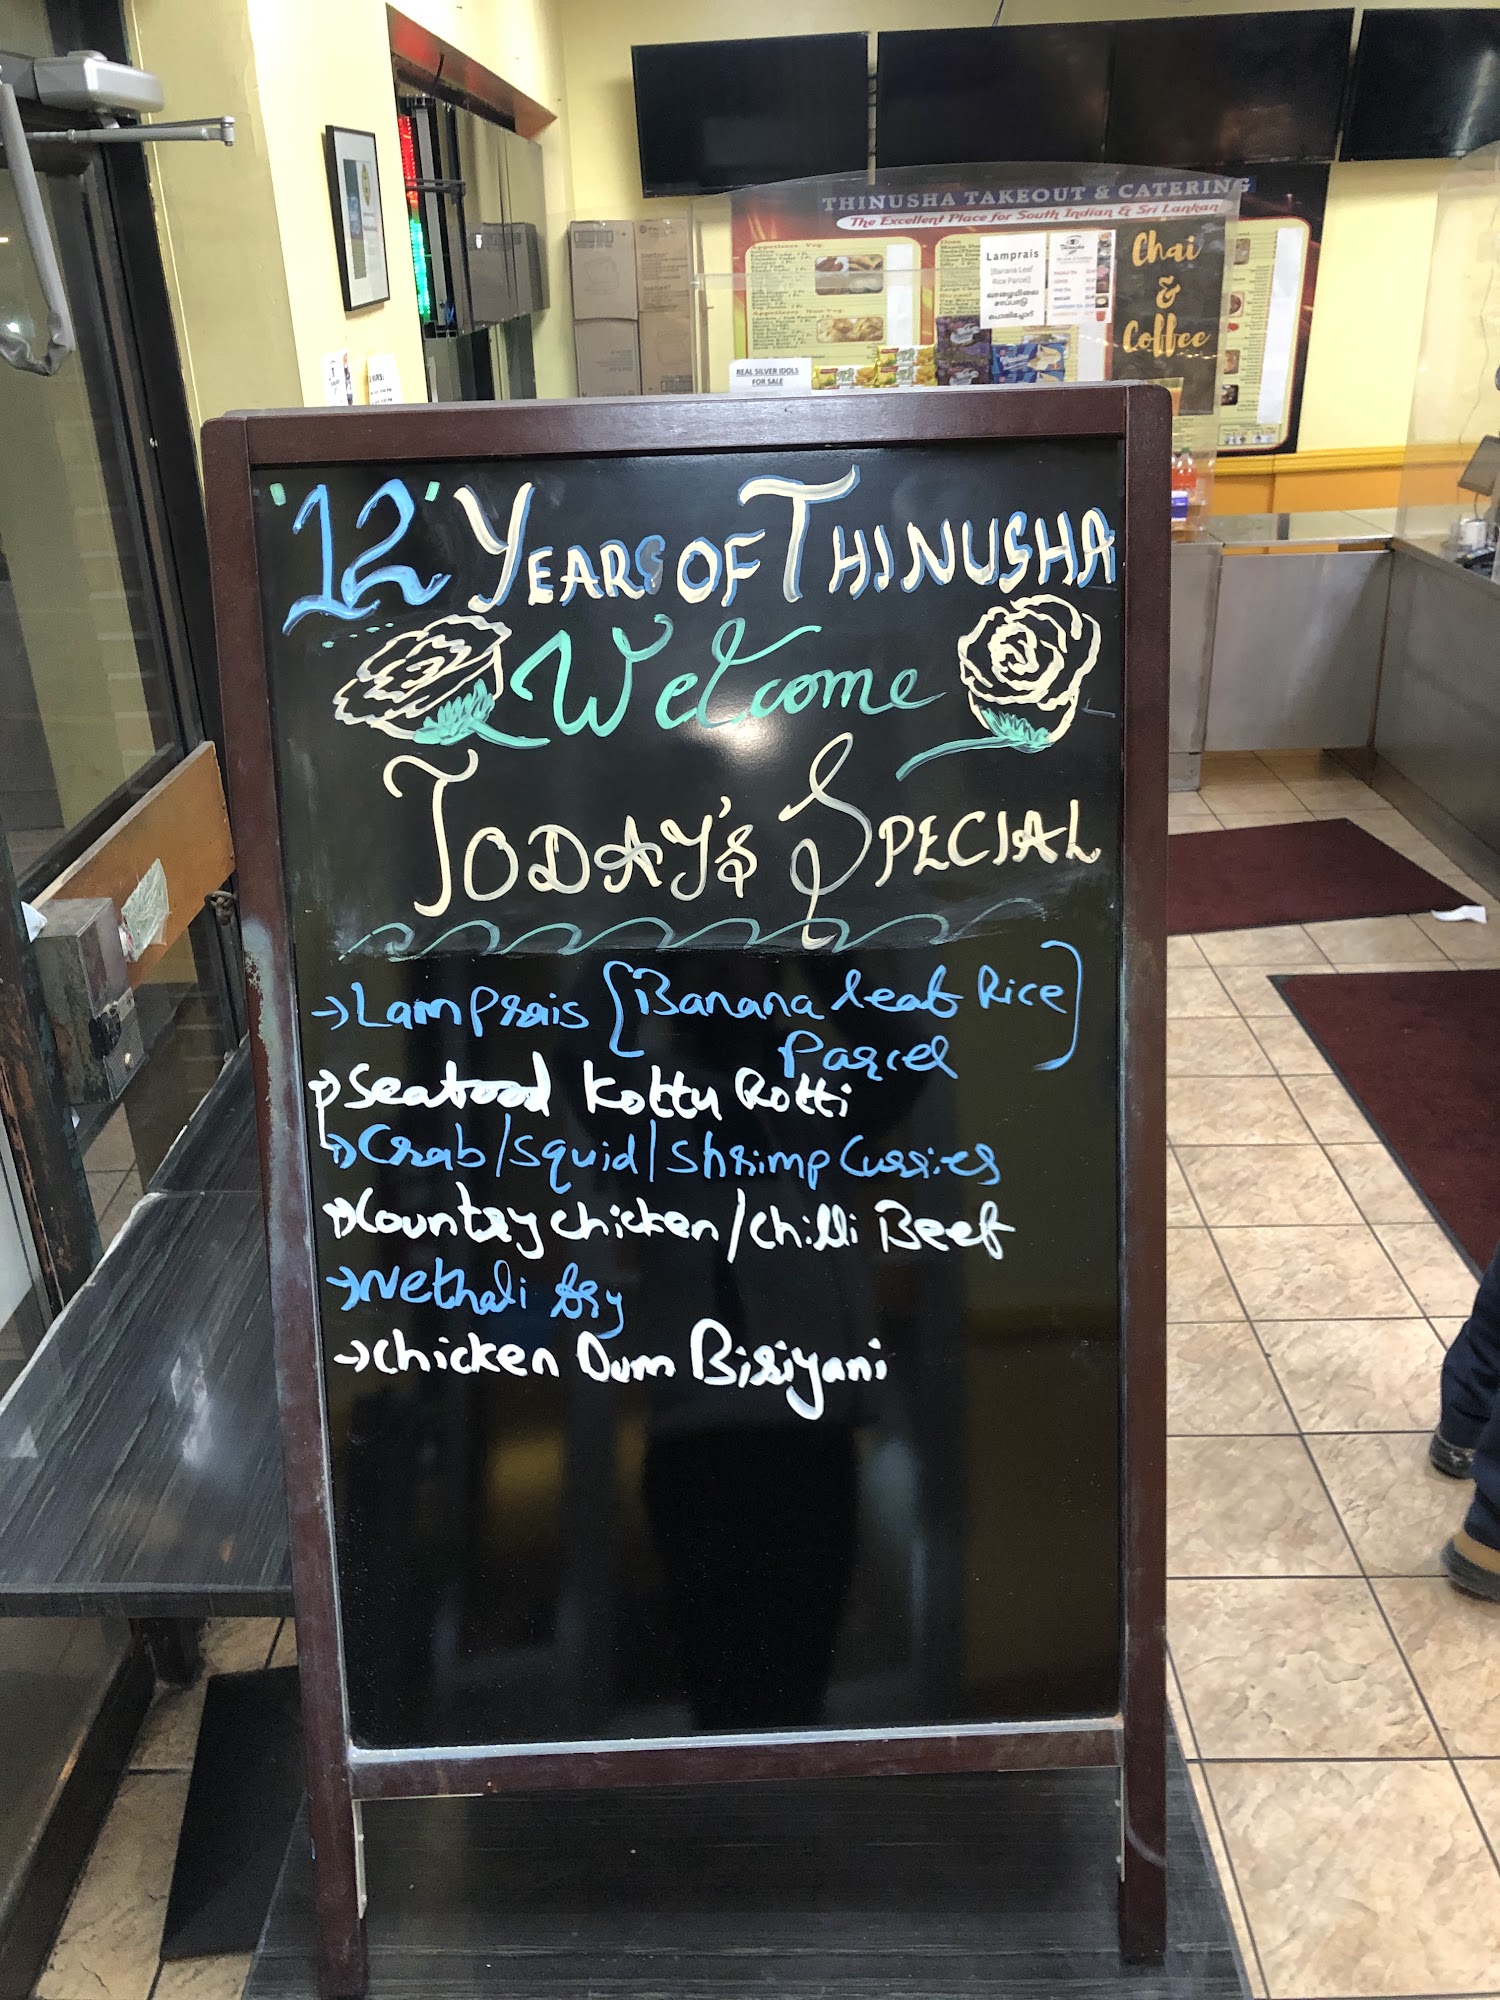 THINUSHA TAKEOUT & CATERING
The Excellent Place for South Indian & Sri Lankan
Appetizers Veg.
Appetizers Non-Veg.
Dosa
Lamprais
[Banana Leaf
Rice Parcel]
Chai
&
Coffee
REAL SILVER IDOLS
FOR SALE
'12' YEARS OF THINUSHA
Welcome
TODAY'S SPECIAL
→Lamprais [Banana leaf Rice
Parcel]
→Seafood Kottu Rotti
→Crab/Squid/Shrimp Curries
→Country chicken/Chilli Beef
→Nethali fry
→Chicken Dum Biriyani